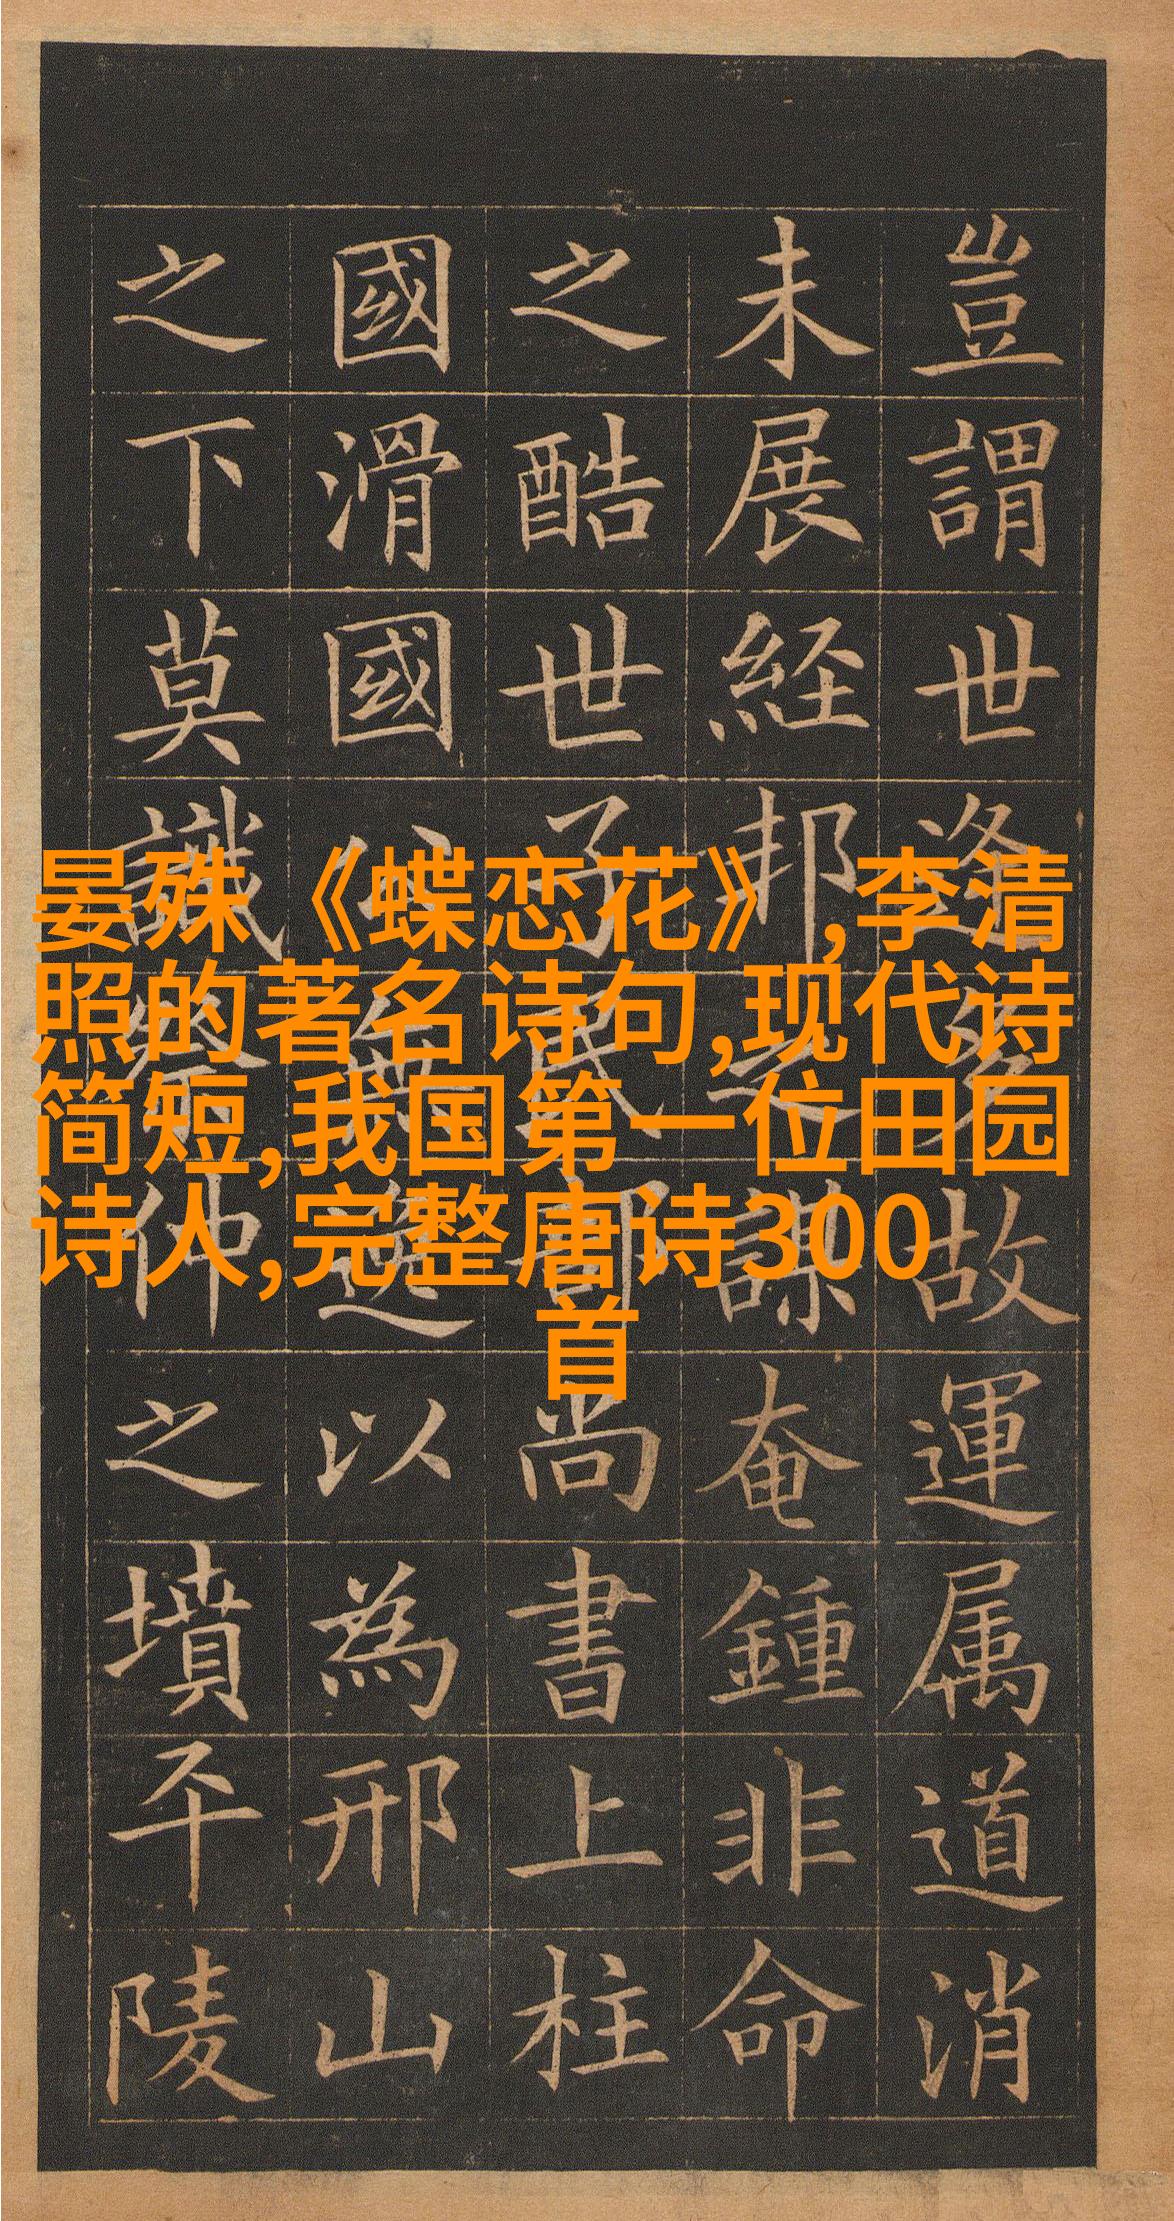 晏殊《蝶恋花》,李清
照的著名诗句,现代诗
简短,我国第一位田园
诗人,完整唐诗300
首
豈謂世逢多故運属道消
未展経邦之謀奄鍾非命
之酷世子民部尚書上柱
國滑國公無逸以為邢山
之下莫識祭仲之墳平陵